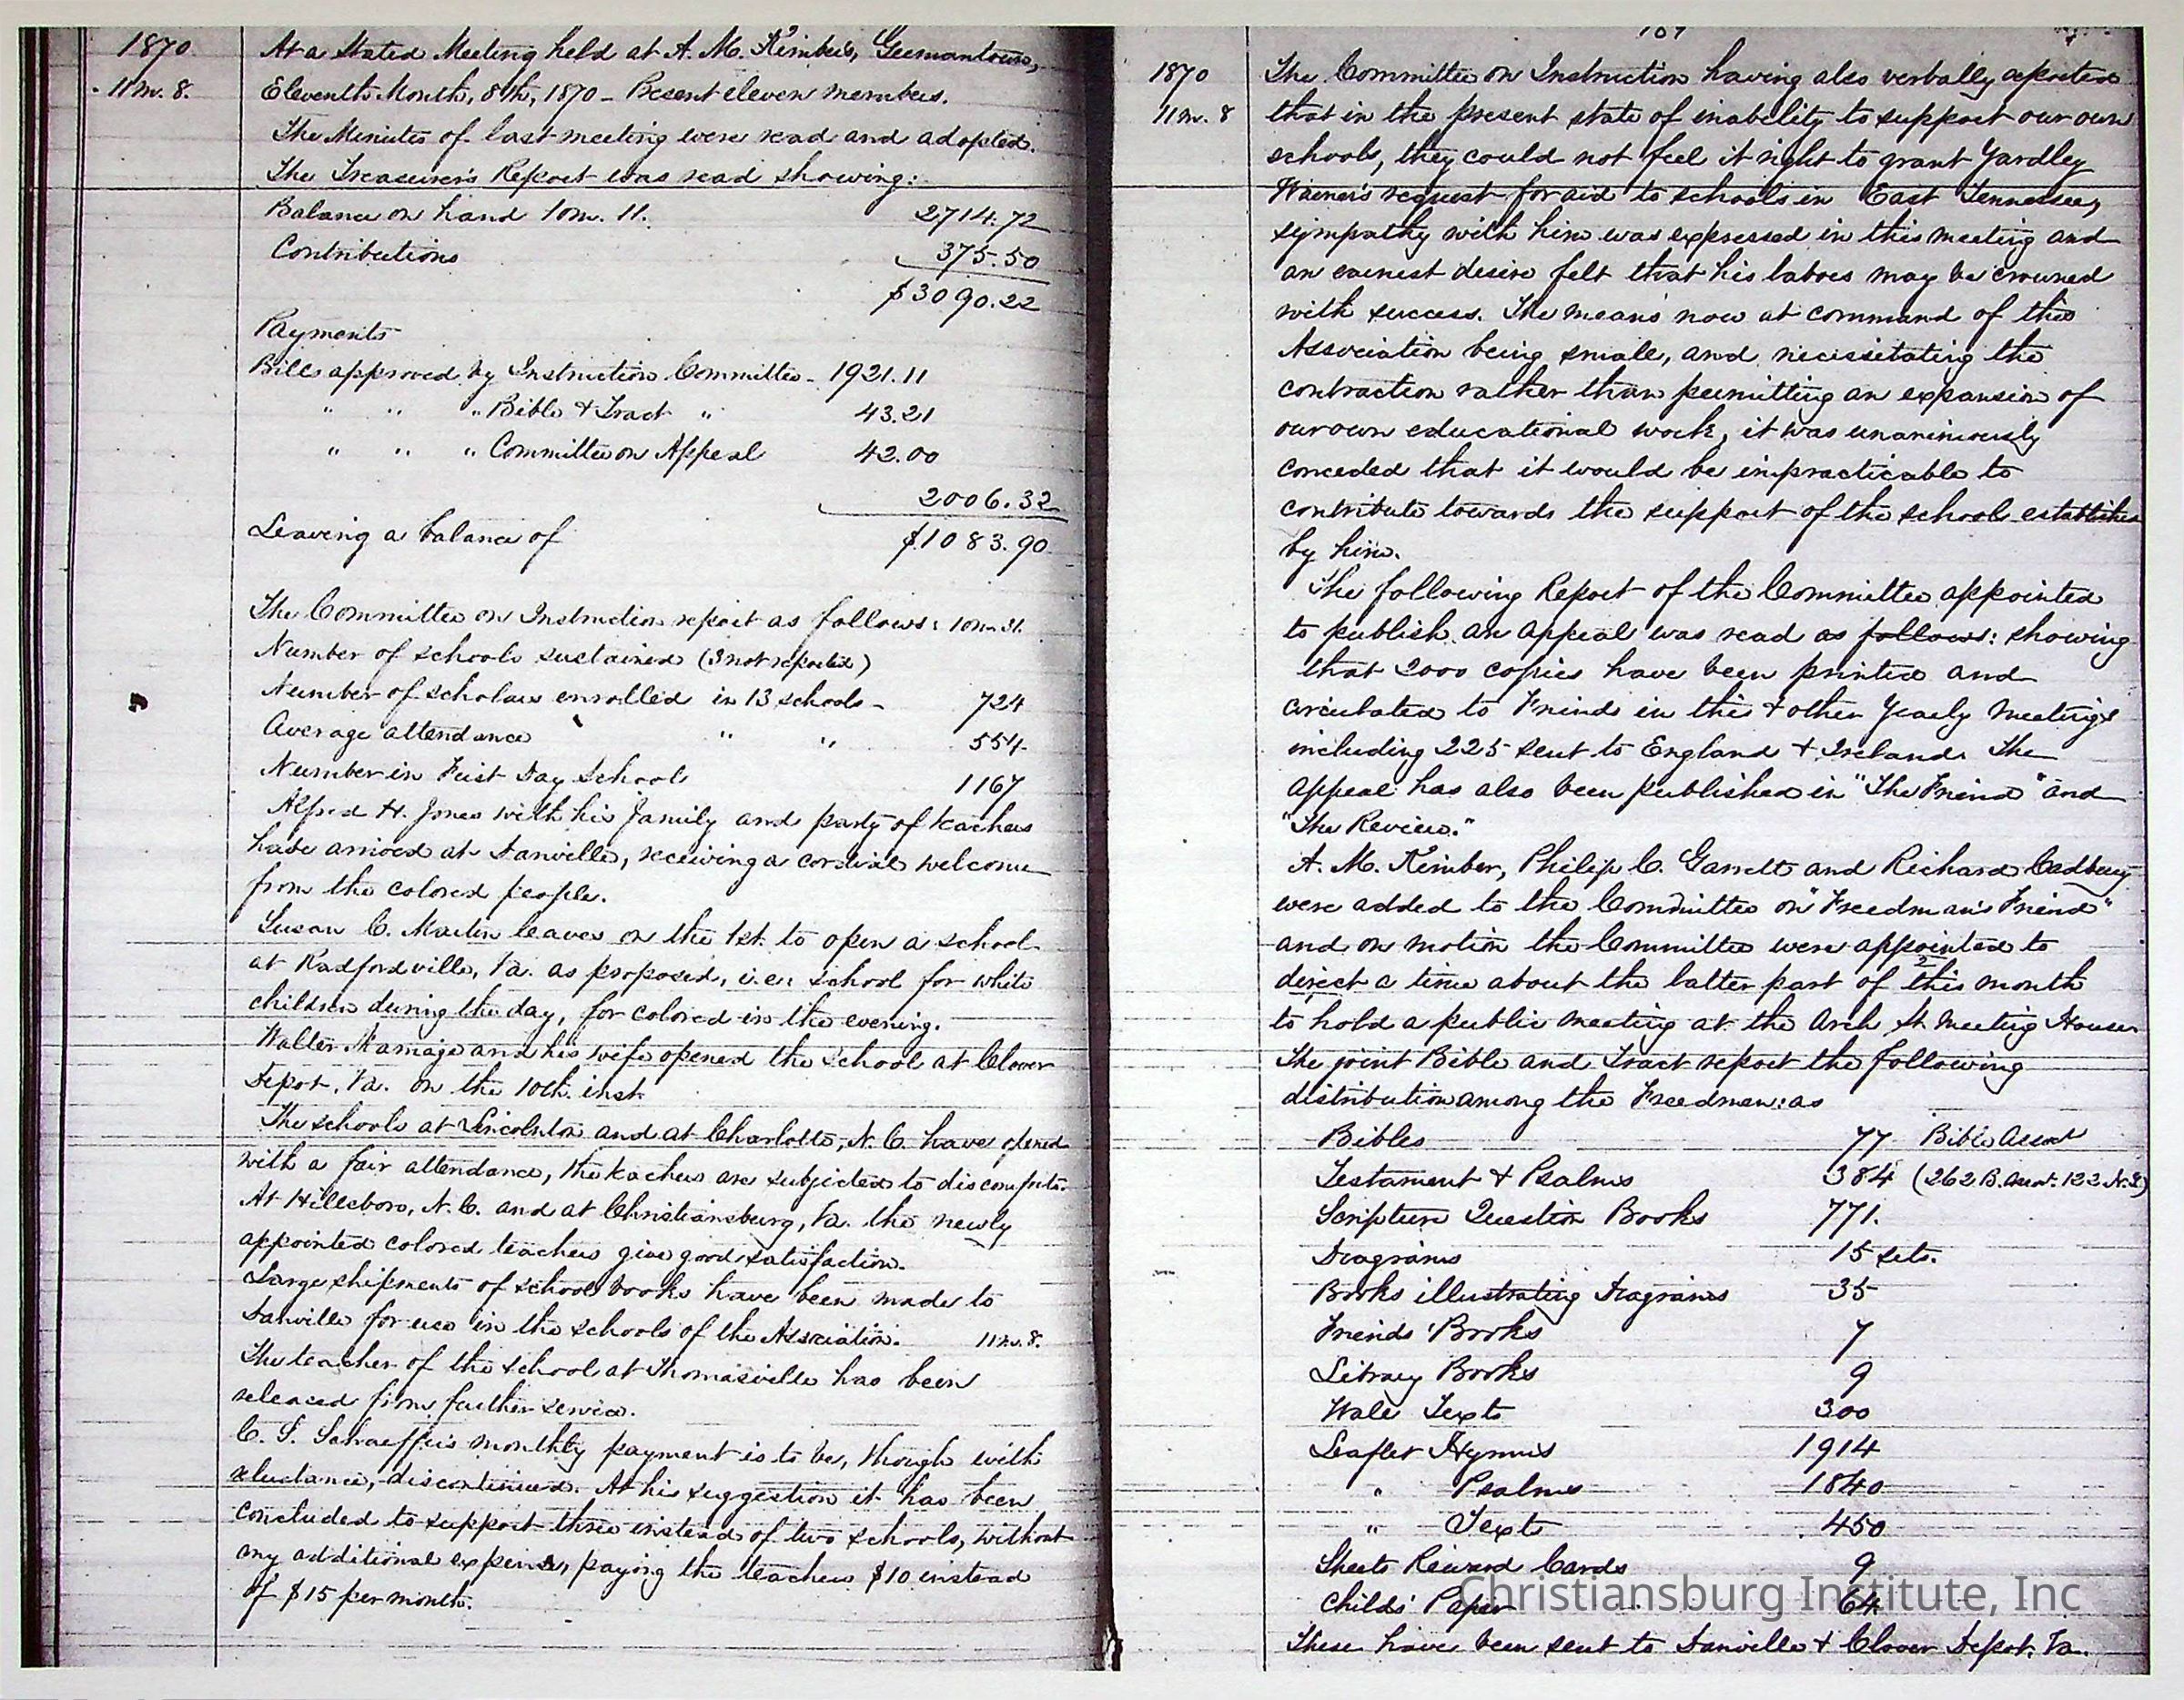 1870
11 m. 8.
At a Stated Meeting held at A. M. Kimber's, Germantown,
Eleventh Month, 8th, 1870 – Present eleven members.
The Minutes of last meeting were read and adopted.
The Treasurer's Report was read showing:
Balance on hand 10m. 11. 2714.72
Contributions 375.50
$3090.22
Payments
Bills approved by Instruction Committee - 1921.11
" " " Bible & Tract " 43.21
" " " Committee on Appeal 42.00
2006.32
Leaving a balance of $1083.90
The Committee on Instruction report as follows: 10m 31.
Number of schools sustained (3 not reported)
Number of scholars enrolled in 13 schools - 724
Average attendance " " 554
Number in First Day Schools 1167
Alfred H. Jones with his family and party of teachers
have arrived at Danville, receiving a cordial welcome
from the colored people.
Susan C. Martin leaves on the 1st. to open a school
at Radfordville, Va. as proposed, i.e.: school for white
children during the day, for colored in the evening.
Walter Ramage and his wife opened the school at Clover
Depot, Va. on the 10th. inst.
The schools at Lincolnton and at Charlotte, N. C. have opened
with a fair attendance, the teachers are subjected to discomforts.
At Hillsboro, N. C. and at Christiansburg, Va. the newly
appointed colored teachers give good satisfaction.
Large shipments of school books have been made to
Danville for use in the schools of the Association. 11m. 8.
The teacher of the school at Thomasville has been
released from further service.
C. S. Schaeffer's monthly payment is to be, though with
reluctance, discontinued. At his suggestion it has been
concluded to support three instead of two schools, without
any additional expense, paying the teachers $10 instead
of $15 per month.
107
1870
11m. 8
The Committee on Instruction having also verbally reported
that in the present state of inability to support our own
schools, they could not feel it right to grant Yardley
Warner's request for aid to schools in East Tennessee,
sympathy with him was expressed in this meeting and
an earnest desire felt that his labors may be crowned
with success. The means now at command of this
Association being small, and necessitating the
contraction rather than permitting an expansion of
our own educational work, it was unanimously
conceded that it would be impracticable to
contribute towards the support of the schools established
by him.
The following Report of the Committee appointed
to publish an appeal was read as follows: showing
that 2000 copies have been printed and
circulated to Friends in this & other Yearly Meetings
including 225 sent to England & Ireland. The
appeal has also been published in "The Friend" and
"The Review."
A. M. Kimber, Philip C. Garrett and Richard Cadbury
were added to the Committee on "Freedman's Friend"
and on motion the Committee were appointed to
direct a time about the latter part of this month
to hold a public meeting at the Arch St Meeting House
The joint Bible and Tract report the following
distribution among the Freedmen: as
Bibles 77 Bible Assoc
Testament & Psalms 384 (262 B. Assoc. 122 N.Y.)
Scripture Question Books 771.
Diagrams 15 sets.
Books illustrating Diagrams 35
Friends' Books 7
Library Books 9
Wall Texts 300
Leaflet Hymns 1914
" Psalms 1840
" Texts 450
Sheets Reward Cards 9
Childs' Paper 64
These have been sent to Danville & Clover Depot, Va.
Christiansburg Institute, Inc